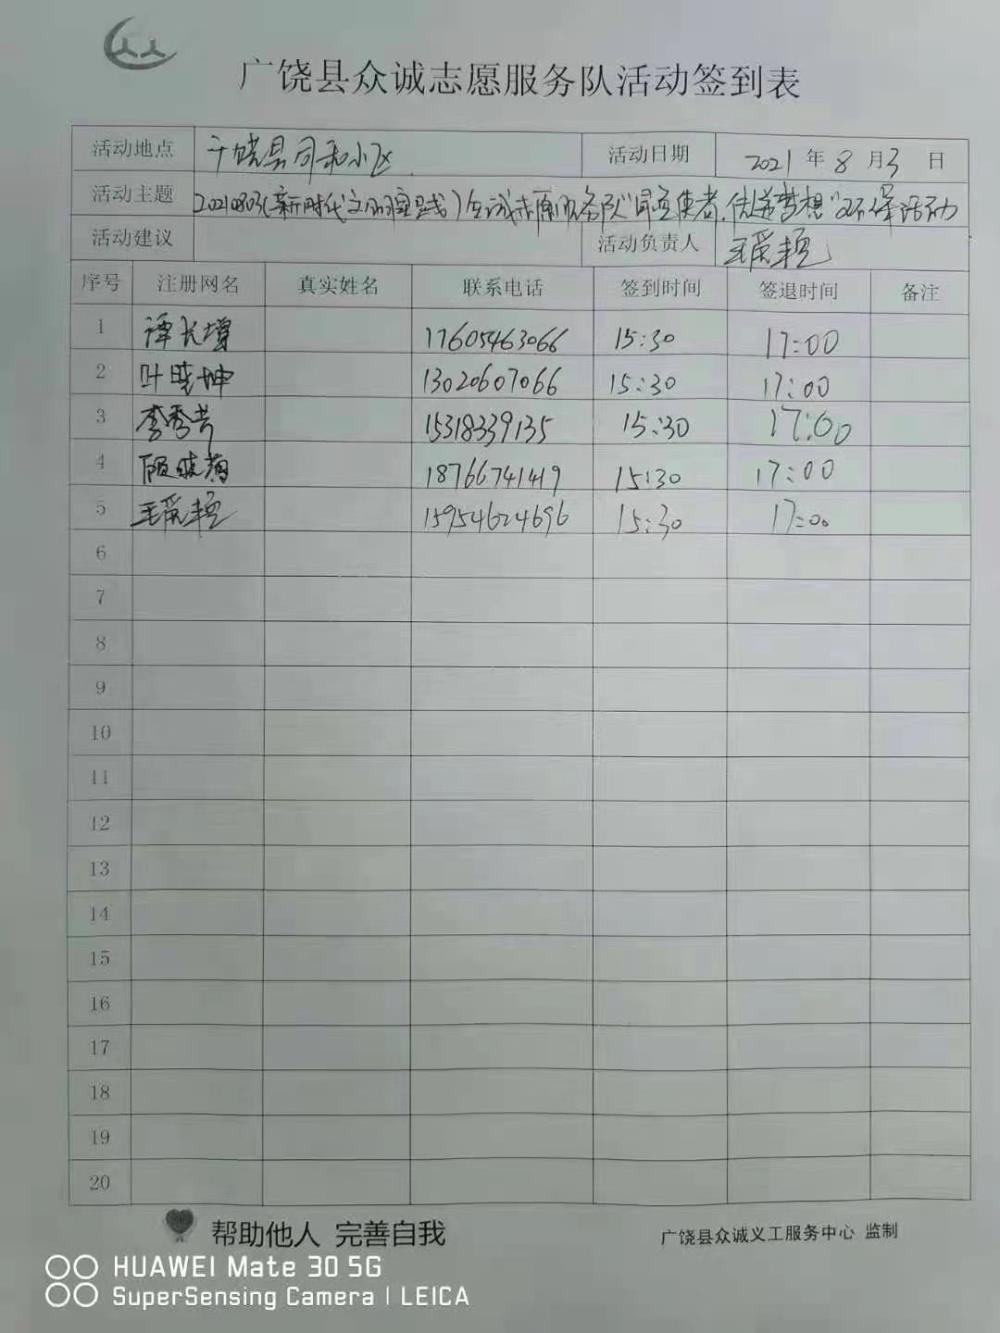 广饶县众诚志愿服务队活动签到表
活动地点 广饶县同和小区 活动日期 2021 年 8 月 3 日
活动主题 20210803(新时代文明实践)众诚志愿服务队"绿色使者,传递梦想"环保活动
活动建议 活动负责人 王爱艳
序号 注册网名 真实姓名 联系电话 签到时间 签退时间 备注
1 谭长增 17605463066 15:30 17:00
2 叶晓坤 13020607066 15:30 17:00
3 李秀芳 15318339135 15:30 17:00
4 顾晓梅 18766741419 15:30 17:00
5 王爱艳 15954624696 15:30 17:00
6
7
8
9
10
11
12
13
14
15
16
17
18
19
20
帮助他人 完善自我 广饶县众诚义工服务中心 监制
HUAWEI Mate 30 5G
SuperSensing Camera | LEICA